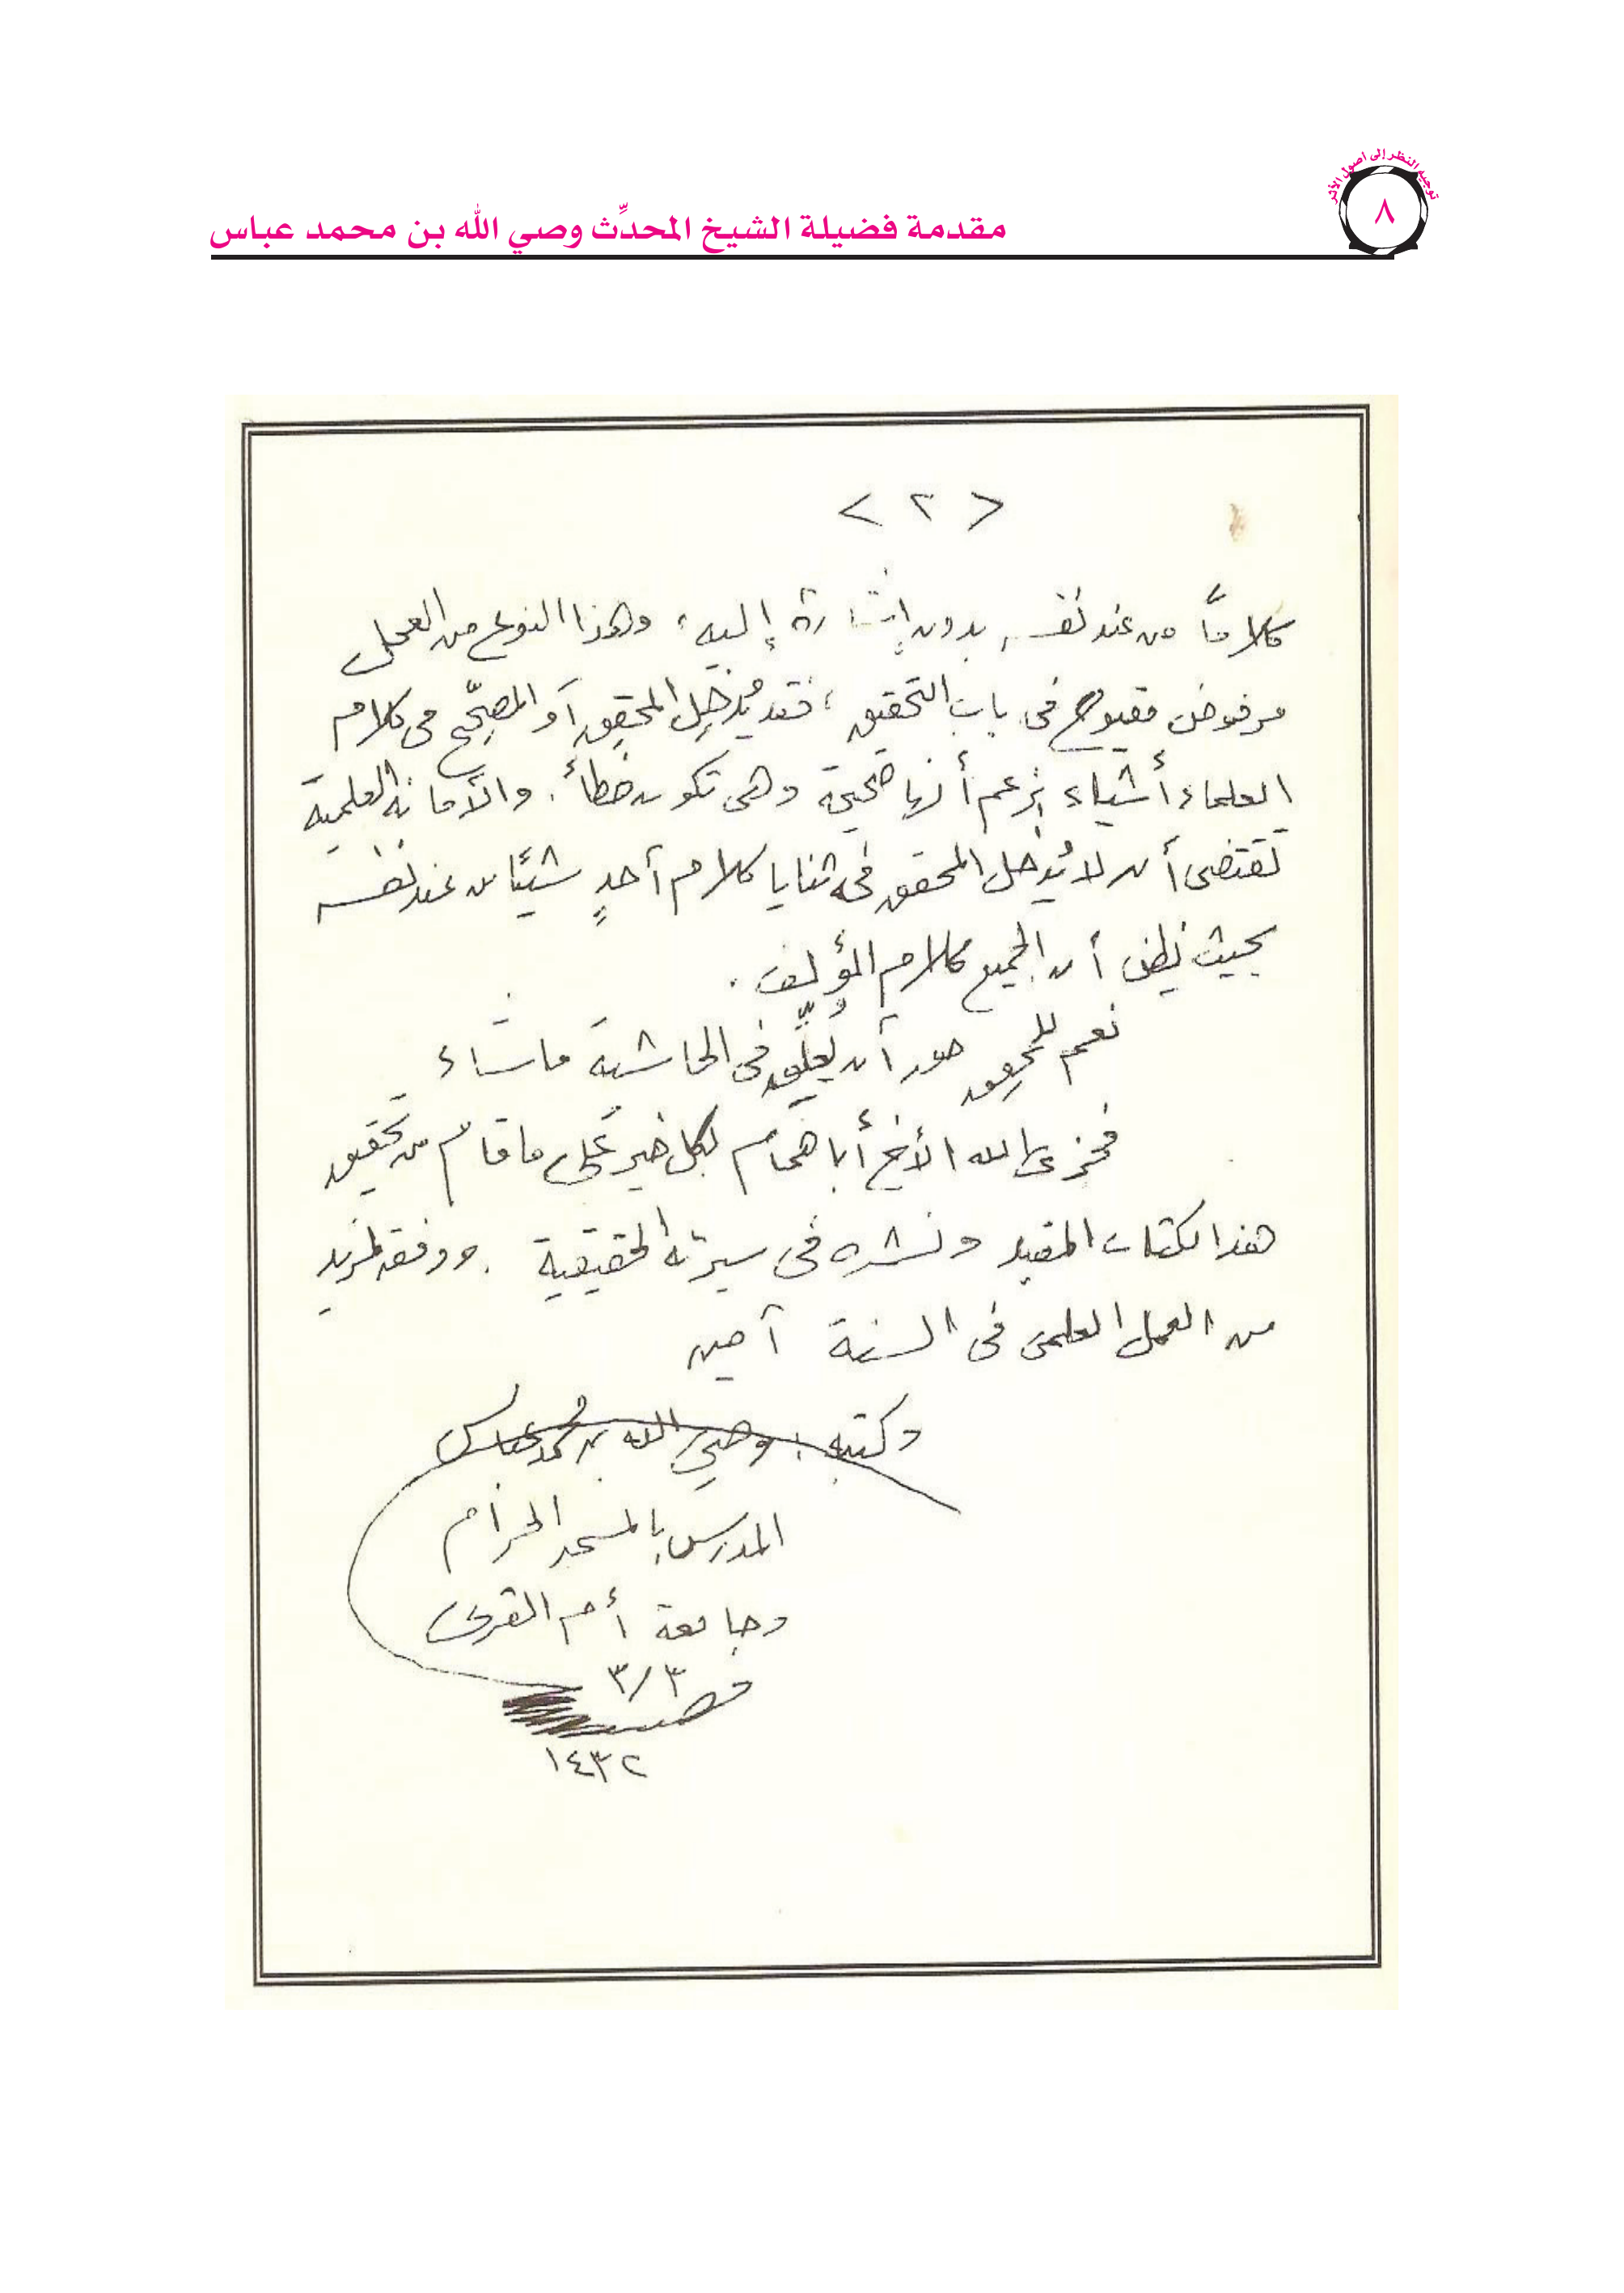 توجيه النظر إلى أصول الأثر
٨
مقدمة فضيلة الشيخ المحدِّث وصي الله بن محمد عباس
< ٢ >
كلامًا من عند نفسه بدون إشارة إليه، وهذا النوع من العمل
مرفوض مقبوح في باب التحقيق، فقد يُدخِل المحقِق أو المصحِّح في كلام
العلماء أشياء يزعم أنها صحيحة وهي تكون خطأً. والأمانة العلمية
تقتضى أن لا يُدخل المحقق في ثنايا كلام أحدٍ شيئا من عند نفسه
بحيث يظن أن الجميع كلام المؤلف.
نعم للمحقِق أن يُعلِّق في الحاشية ما شاء
فجزى الله الأخ أبا همام بكل خير على ما قام من تحقيق
هذا الكتاب المفيد ونشره في سيرته الحقيقية. ووفقه لمزيد
من العمل العلمي في السنة آمين
وكتبه: وصي الله بن محمد عباس
المدرس بالمسجد الحرام
وجامعة أم القرى
٣/٣
١٤٣٢